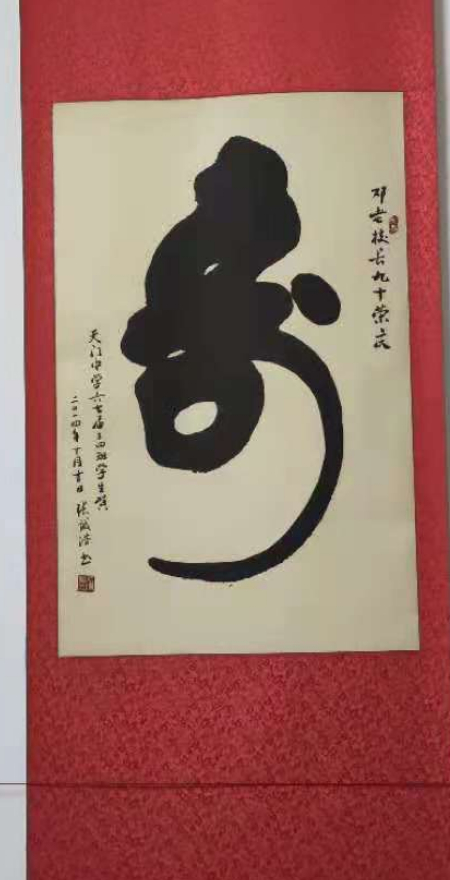 邓老校长九十荣庆
寿
天门中学六七届三四班学生贺
二〇一四年十月吉日 张成浩书